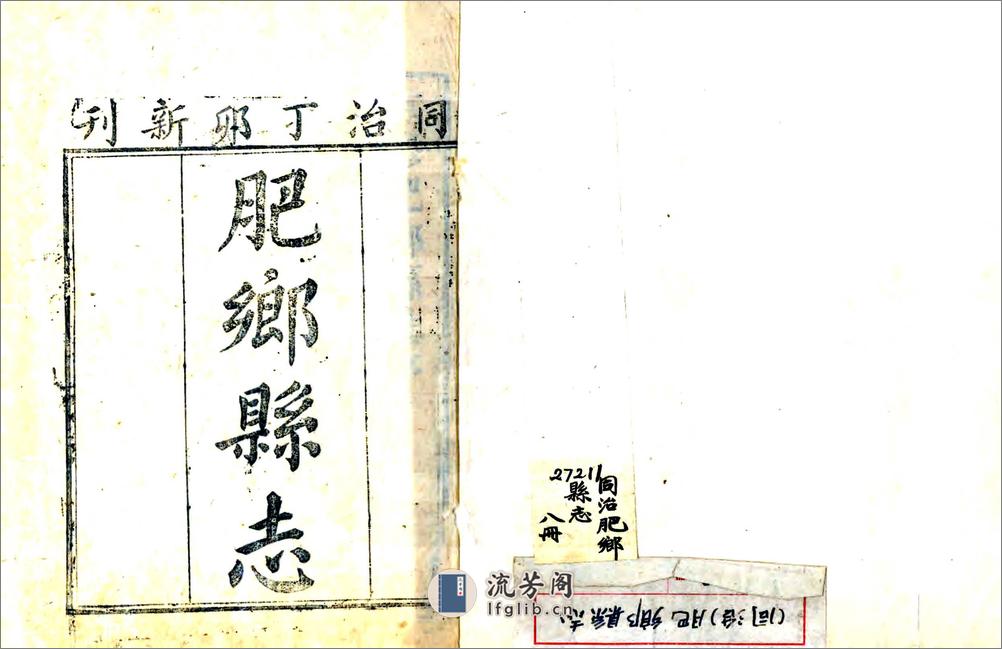 同治丁卯新刊
肥鄉縣志
27211
同治肥鄉
縣志
八冊
流芳阁
lfglib.cn
(同治)肥鄉縣志